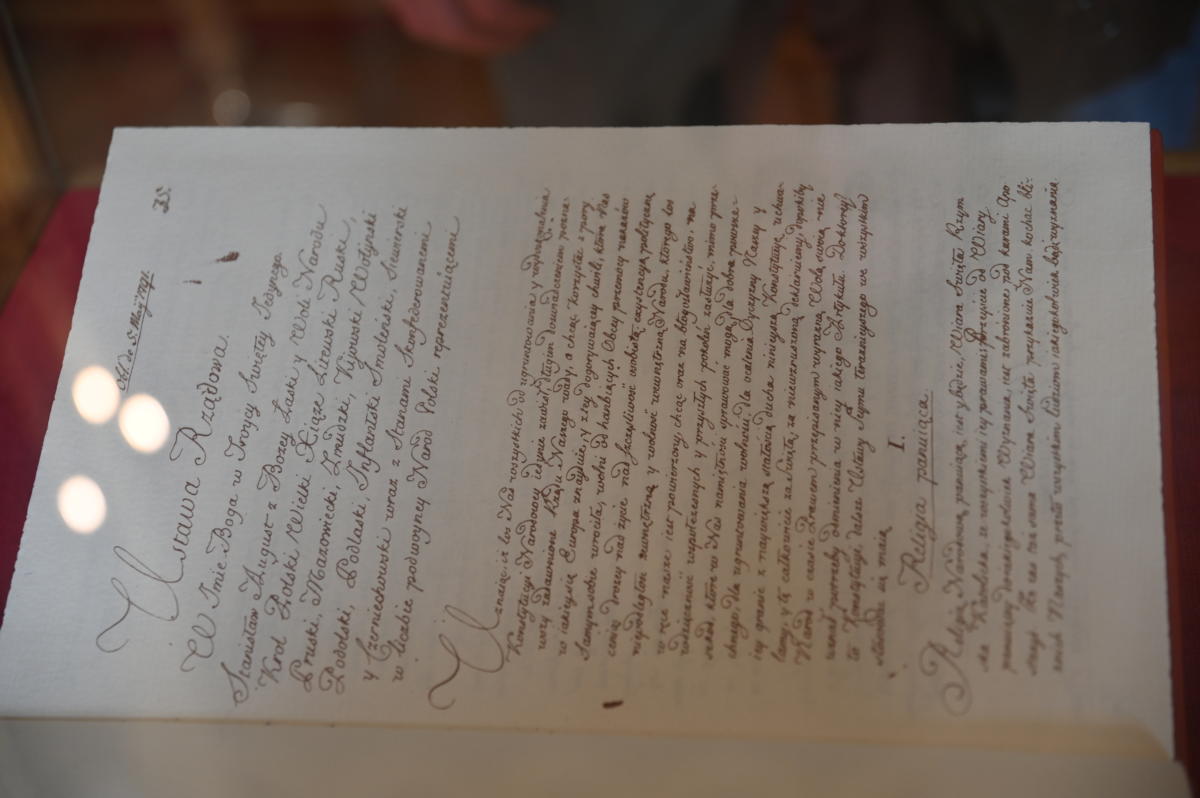 35.
Obl. de 5. Maij 1791.
Ustawa Rządowa.
W Imie Boga w Troycy Swiętey Iedynego.
Stanisław August z Bozey Łaski y Woli Narodu
Krol Polski Wielki Xiąze Litewski Ruski,
Pruski, Mazowiecki, Zmudzki, Kijowski Wołyński
Podolski, Podlaski, Inflantski Smoleński, Siewierski
y Czerniechowski wraz z Stanami Skonfederowanemi
w liczbie podwoyney Narod Polski reprezentuiącemi
Uznaiąc, iz los Nas wszystkich od ugruntowania y wydoskonalenia
Konstytucyi Narodowey iedynie zawisł, długim doswiadczeniem poznawszy
zadawnione Rządu Naszego wady, a chcąc korzystac z pory,
w iakiey się Europa znayduie, y z tey dogorywaiącey chwili, ktora Nas
Samym sobie wrociła, wolni od hanbiących Obcey przemocy nakazow
ceniąc drozey nad zycie, nad szczęsliwosc osobistą, exystencyą polityczną
niepodległosc zewnętrzną y wolnosc wewnętrzną Narodu, ktorego los
w ręce nasze iest powierzony, chcąc oraz na błogosławienstwo, na
wdzięcznosc wspołczesnych y przyszłych pokolen zasłuzyc, mimo prze-
szkod, ktore w Nas namiętnosci sprawowac mogą, dla dobra powsze-
chnego, dla ugruntowania wolnosci, dla ocalenia Oyczyzny Naszey y
iey granic z naywiększą stałoscią ducha ninieyszą Konstytucyę uchwa-
lamy, y tę całkowicie za Swiętą, za niewzruszoną deklaruiemy, dopokiby
Narod w czasie Prawem przepisanym wyrazną Wolą swoią nie
uznał potrzeby odmienienia w niey iakiego Artykułu. Do ktorey
to Konstytucyi dalsze Ustawy Seymu teraznieyszego we wszystkim
stosowac się maią
I.
Religia panuiąca.
Religią Narodową panuiącą iest y będzie, Wiara Swięta Rzym-
ska Katolicka, ze wszystkiemi iey prawami. Przeyscie od Wiary
panuiącey do iakiegokolwiek Wyznania, iest zabronione pod karami Apo-
stazyi. Ze zas taz sama Wiara Swięta przykazuie Nam kochac bli-
znich Naszych, przeto wszystkim ludziom iakiegokolwiek bądz wyznania